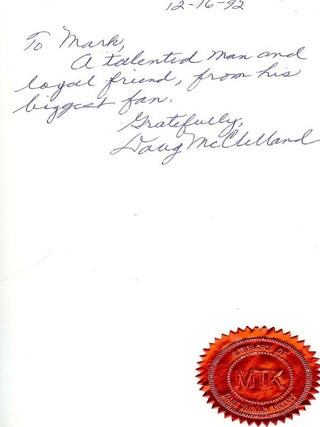 12-16-92
To Mark,
A talented man and
loyal friend, from his
biggest fan.
Gratefully,
Doug McClelland
LIBRARY OF
MTK